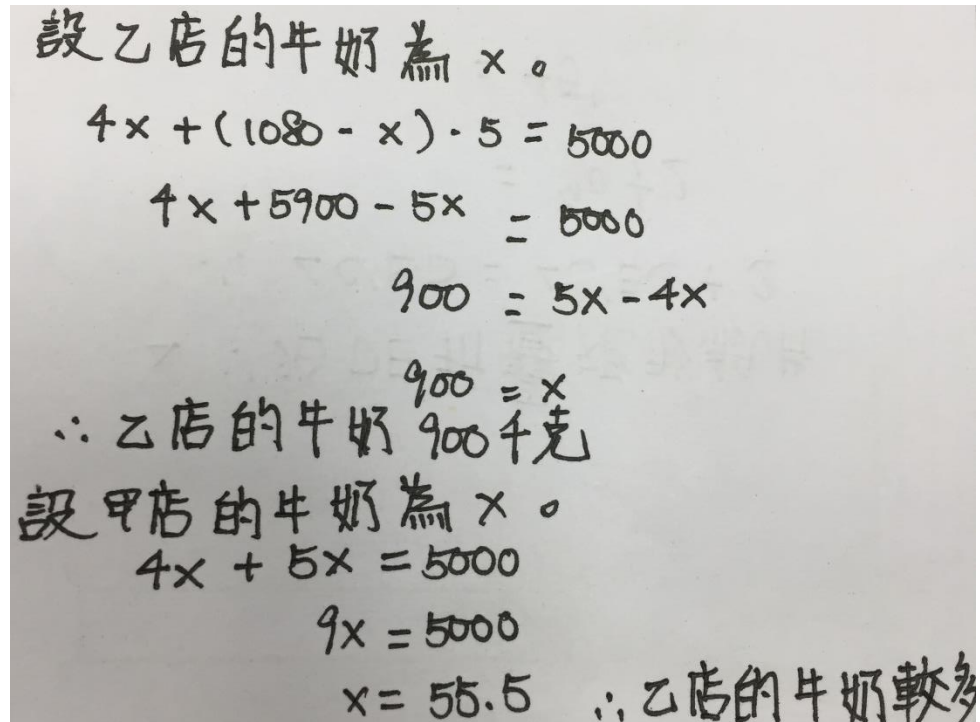 設乙店的牛奶為 x。
4x + (1080 - x) · 5 = 5000
4x + 5900 - 5x = 5000
900 = 5x - 4x
900 = x
∴ 乙店的牛奶 900千克
設甲店的牛奶為 x。
4x + 5x = 5000
9x = 5000
x = 55.5 ∴ 乙店的牛奶較多